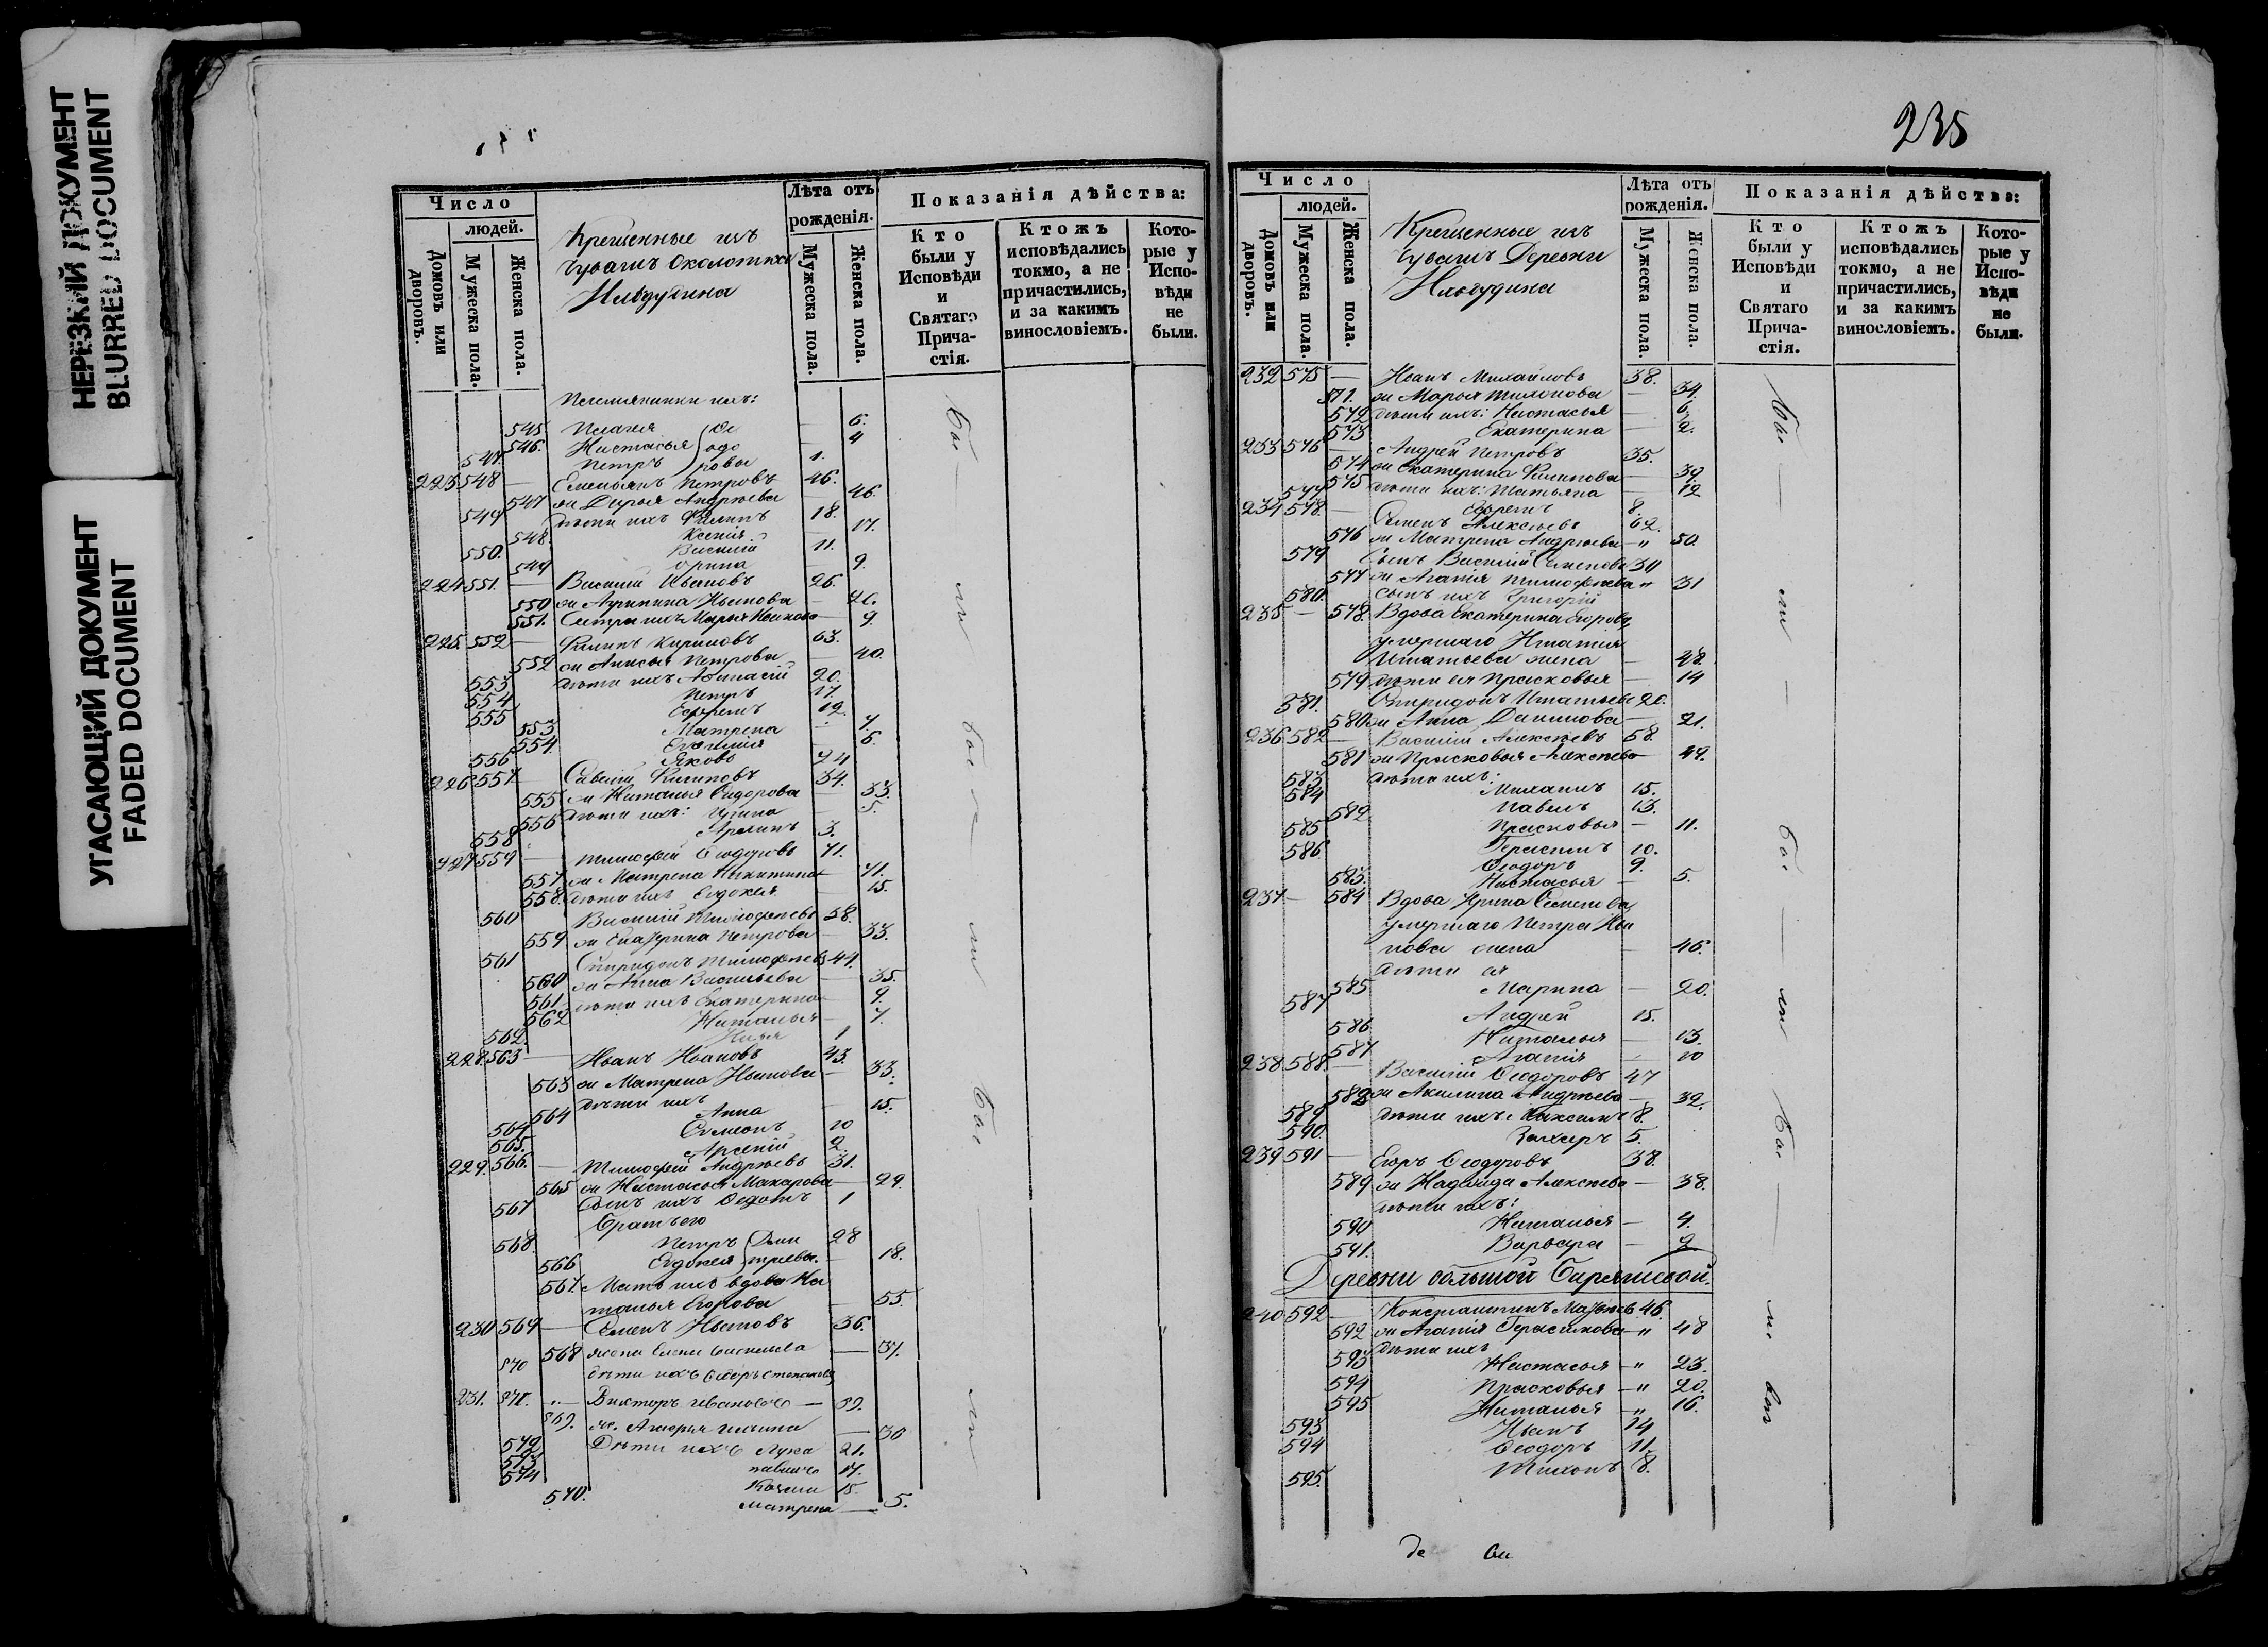 НЕРЕЗКИЙ ДОКУМЕНТ
BLURRED DOCUMENT
УГАСАЮЩИЙ ДОКУМЕНТ
FADED DOCUMENT
Число
людей.
Домовъ или дворовъ.
Мужеска пола.
Женска пола.
Крещенные изъ
Чувашъ Околотка
Лѣта отъ рожденія.
Мужеска пола.
Женска пола.
Показанія дѣйства:
Кто были у Исповѣди и Святаго Причастія.
Ктожъ исповѣдались токмо, а не причастились, и за какимъ винословіемъ.
Которые у Исповѣди не были.
Племянники ихъ:
545 Пелагея 6.
546. Настасья 4
547. Петръ 1.
223 548 — Емельянъ Петровъ 46.
547 ж Дарья Андреева — 46.
549 дѣти ихъ Филипъ 18.
548. Ксенія — 17.
550. Василій 11.
549 Орина — 9.
224 551. — Василій Ивановъ 26.
550 ж Агрипина Иванова — 26.
551. Сестра ихъ Марья Иванова — 9.
225. 552 — Филипъ Кириловъ 63.
552 ж Анисья Петрова — 40.
553 дѣти ихъ Афанасій 20.
554 Петръ 17.
555 Ефремъ 12.
553 Матрена — 7.
554 Евгенія — 6.
556 Яковъ 24
226 557. — Савелій Филиповъ 34.
555 ж Наталья Сидорова — 33.
556 дѣти ихъ: Ирина — 5.
558 3.
227 559 — Тимофей Ѳеодоровъ 71.
557 ж Матрена Никитина — 71.
558. дѣти ихъ Евдокея — 15.
560 Василій Тимофеевъ 38.
559 ж Екатерина Петрова — 33.
561 Спиридонъ Тимофеевъ 44.
560 ж Анна Васильева — 35.
561. дѣти ихъ Екатерина — 9.
562 Наталья — 7.
562. Илья 1
228. 563 — Иванъ Ивановъ 43.
563 ж Матрена Иванова — 33.
дѣти ихъ
564 Анна — 15.
564 Симеонъ 10
565. Арсеній 2.
229. 566. — Тимофей Андреевъ 31.
565 ж Настасья Макарова — 29.
567 Сынъ ихъ Ѳедотъ 1
Братъ его
568. Петръ 28
566 Евдокея — 18.
567. Мать ихъ вдова На
талья Егорова — 55.
230 569 — Семенъ Ивановъ 36.
568 жена Елена Васильева — 37.
570 дѣти ихъ Ѳедоръ
231. 571. — Викторъ Ивановъ — 39.
569. ж. Марья Ильина — 30
572 Дѣти ихъ Лука 21.
573 Павелъ 17.
574 Козьма 15.
570. Матрена — 5.
235
Число
людей.
Домовъ или дворовъ.
Мужеска пола.
Женска пола.
Крещенные изъ
Чувашъ Деревни
Лѣта отъ рожденія.
Мужеска пола.
Женска пола.
Показанія дѣйства:
Кто были у Исповѣди и Святаго Причастія.
Ктожъ исповѣдались токмо, а не причастились, и за какимъ винословіемъ.
Которые у Исповѣди не были.
232 575 — Иванъ Михайловъ 38.
571. ж Марья Тихонова — 34.
572 дѣти ихъ: Настасья — 6.
573 Екатерина — 2.
233 576 — Андрей Петровъ 35.
574 ж Екатерина Филипова — 39.
575 дѣти ихъ: Татьяна — 12
577 Ефремъ 8.
234 578. — Семенъ Алексѣевъ 62.
576 ж Матрена Андреева — " 50.
579 Сынъ Василій Семеновъ 30
577 ж Агапія Тимофеева " 31
580. сынъ ихъ Григорій
235 — 578. Вдова Екатерина Егорова,
умершаго Игнатія
Игнатьева жена — 48.
579 дѣти ея Прасковья — 14
581. Спиридонъ Игнатьевъ 20.
580 ж Анна Данилова — 21.
236 582 — Василій Алексѣевъ 58.
581 ж Прасковья Алексѣева — 49.
дѣти ихъ:
583 Михаилъ 15.
584 Павелъ 13.
582 Прасковья — 11.
585 Герасимъ 10.
586 Ѳеодоръ 9.
583. Настасья — 5.
237 — 584 Вдова Ирина Семенова
умершаго Петра Ива
нова жена — 46.
дѣти ея
585 Марина — 20.
587 Андрей 15.
586 Наталья — 13.
587 Агапія — 10
238 588. — Василій Ѳеодоровъ 47
588 ж Акилина Андреева — 32.
589 дѣти ихъ: Максимъ 8.
590. Захаръ 5.
239 591 — Егоръ Ѳеодоровъ 38.
589 ж Надежда Алексѣева — 38.
дѣти ихъ:
590 Наталья — 4.
591. Варвара — 2
Деревни большой
240 592 — Константинъ 46.
592 ж Агапія Герасимова — " 48
дѣти ихъ
593 Настасья — " 23.
594 Прасковья — " 20.
595 Наталья — " 16.
593 Иванъ 14
594 Ѳеодоръ 11.
595. Тихонъ 8.